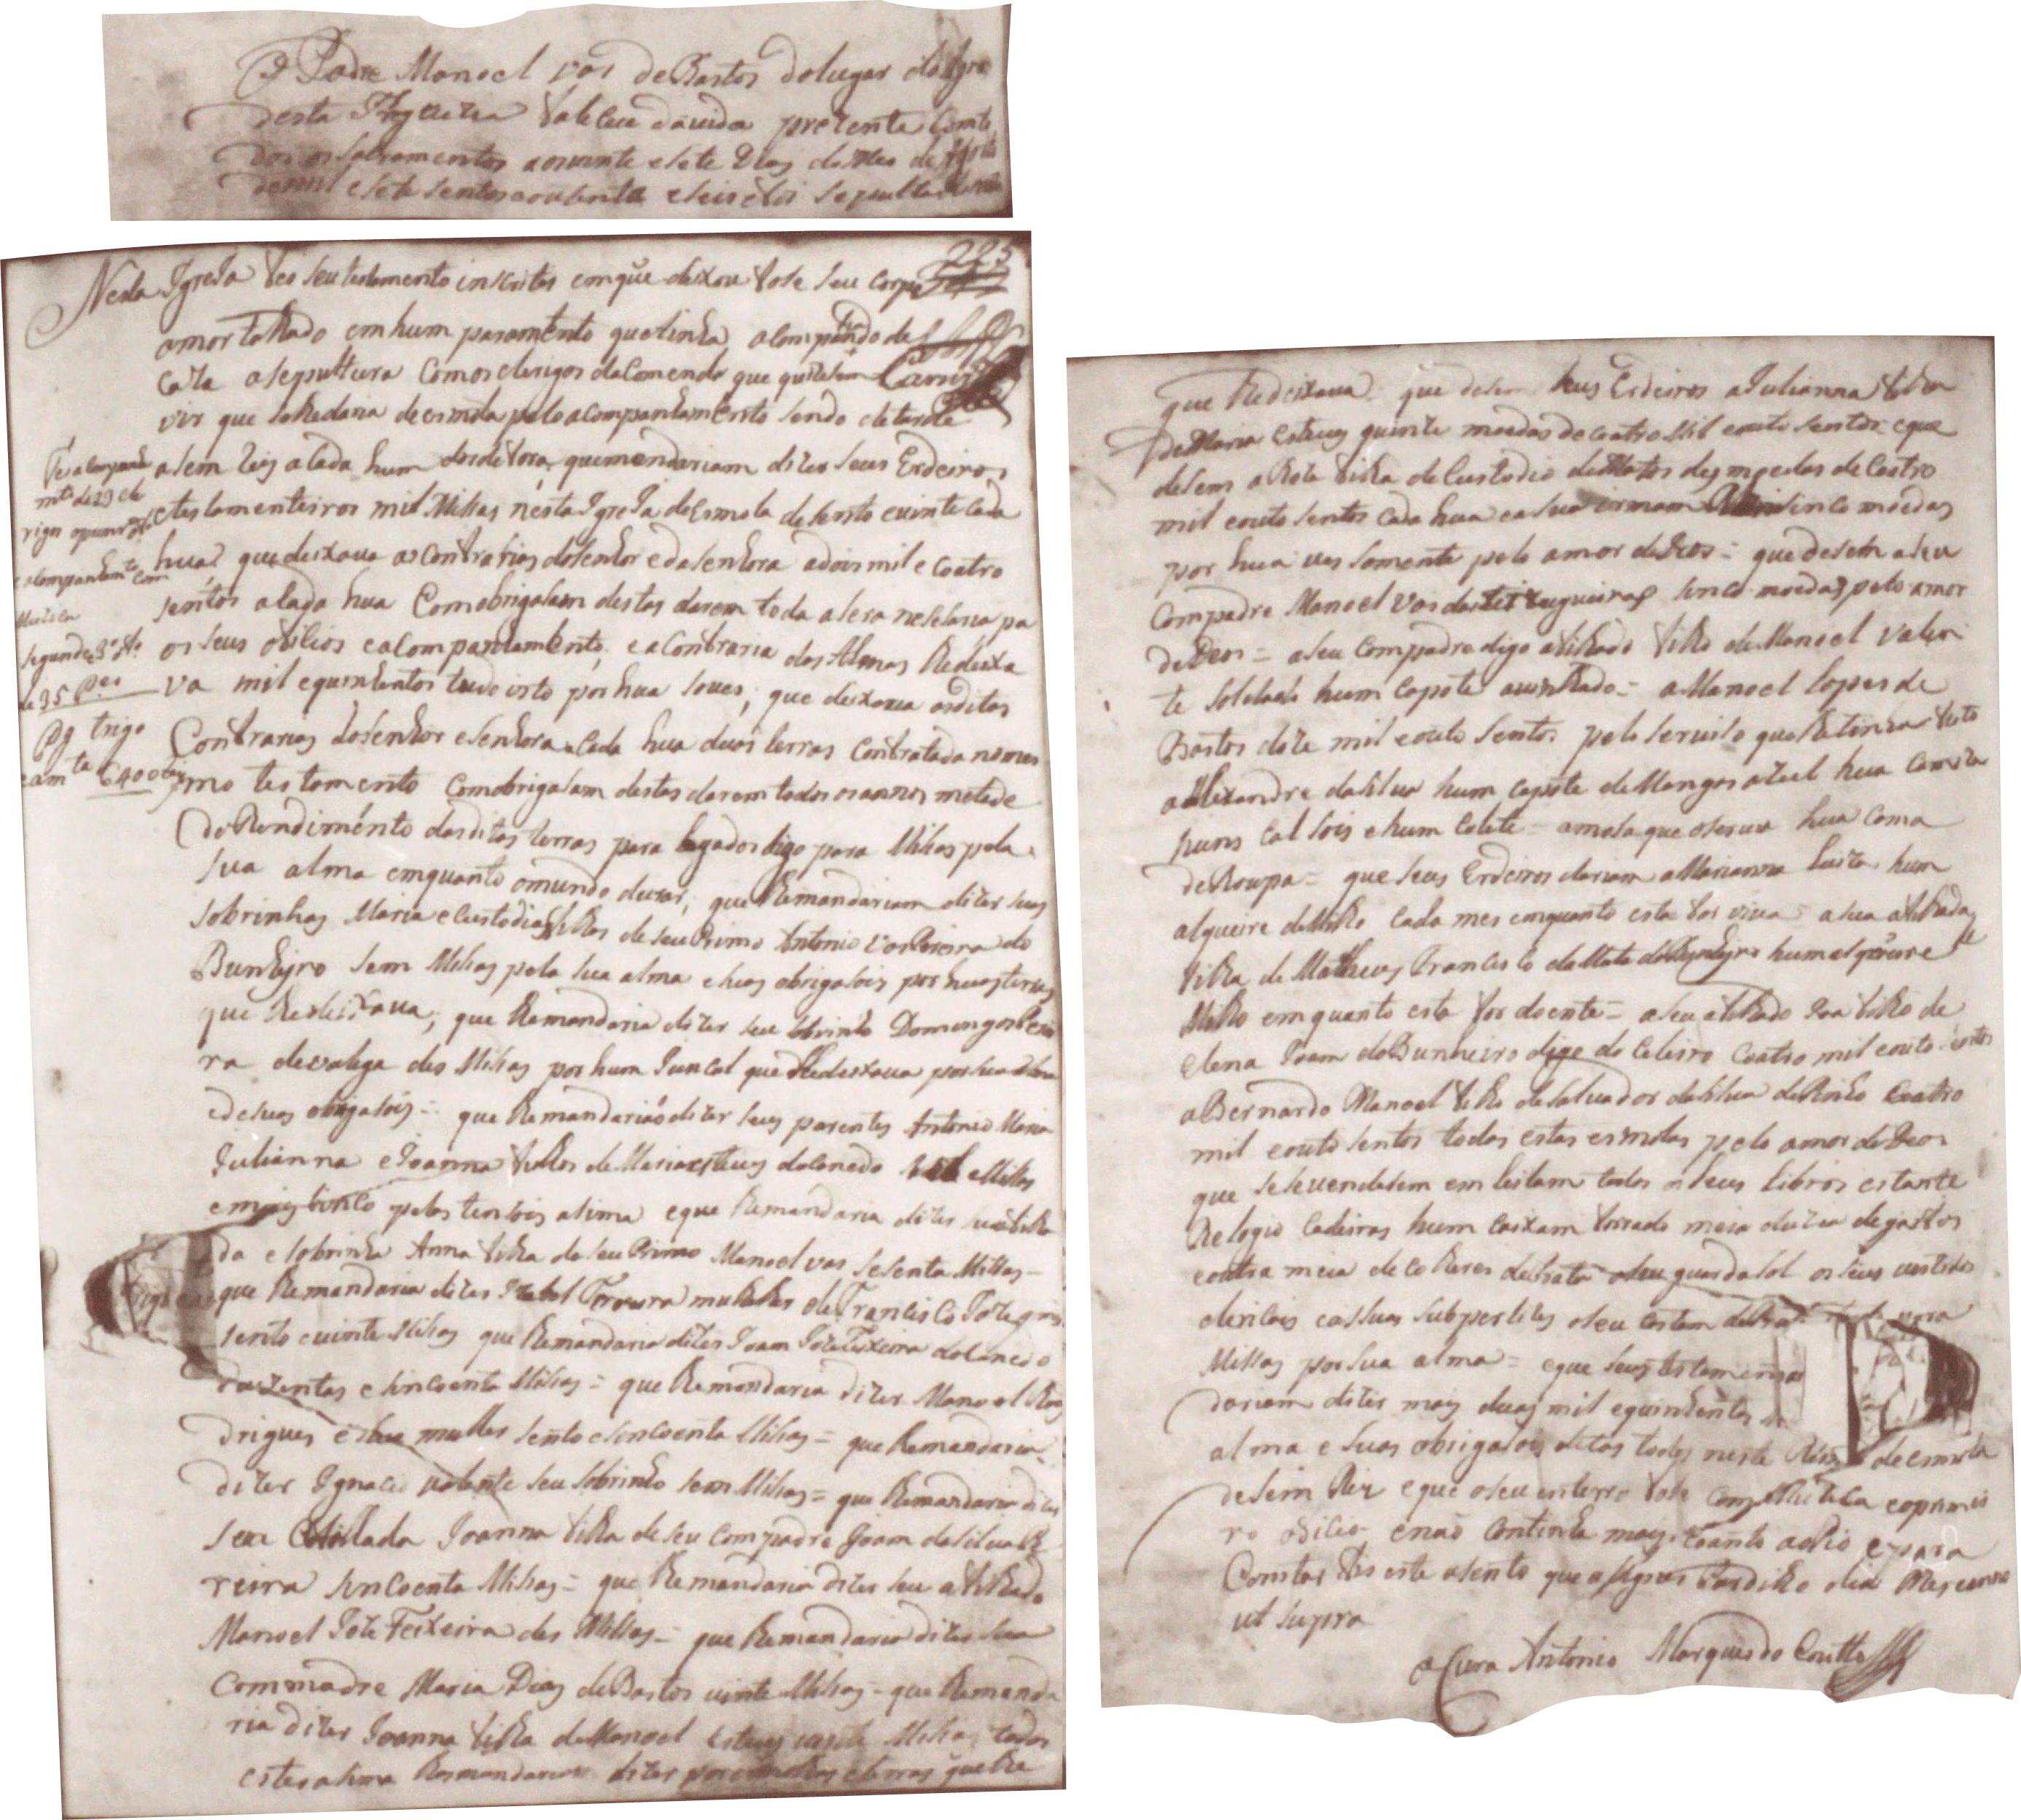 O Padre Manoel vas de Bastos do lugar da Igra
desta Freguezia faleceu da vida prezente Com to
dos os sacramentos aos vinte e sete Dias do Mes de
de mil e sete sentos e outenta e seis e foi sepultado
225
Nesta Igreja fes seu testamento inscritos em que deixou fose seu corpo
amortalhado em hum paramento que tinha acompanhado de
caza a sepultura com os clerigos da Comenda que quizesem
vir que se lhe daria de esmola pelo acompanhamento sendo de tarde
a sem reis a cada hum dos de fora, que mandariam dizer seus Erdeiros
e testamenteiros mil Missas nesta Igreja de esmola de sento e vinte cada
hua que deixava as Confrarias do senhor e da senhora a dois mil e coatro
sentos a cada hua Com obrigasam destas darem toda a sera nesesaria pa
os seus oficios e acompanhamento, e a Confraria das Almas lhe deixa
va mil e quinhentos tudo isto por hua so ves; que deixava as ditas
Confrarias do senhor e senhora a cada hua duas terras Contratada no mes
mo testamento com obrigasam destas darem todos os annos metade
do Rendimento das ditas terras para legados digo para Missas pela
sua alma emquanto o mundo durar; que lhe mandariam dizer suas
sobrinhas Maria e Custodia filhas de seu Primo Antonio vas Pereira do
Bunheyro sem Missas pela sua alma e suas obrigasois por huas terras
que lhe deixava; que lhe mandaria dizer seu sobrinho Domingos Perei
ra de valega des Missas por hum Juncal que lhe deixava por sua alma
e de suas obrigasois = que lhe mandariao dizer seus parentes Antonio Maria
Julianna e Joanna filhos de Maria esteves do Canedo mil Missas
e mais sinco pelas tensois asima e que lhe mandaria dizer sua afilha
da e sobrinha Anna filha de seu Primo Manoel vas sesenta Missas =
que lhe mandaria dizer Izabel Ferreira mulher de Francisco Joze
sento e vinte Missas que lhe mandaria dizer Joam Joze Teixeira do Canedo
duzentas e sincoenta Missas = que lhe mandaria dizer Manoel Ro
drigues e sua mulher sento e sincoenta Missas = que lhe mandaria
dizer Ignacio valente seu sobrinho sem Missas = que lhe mandaria dizer
sua Afilhada Joanna filha de seu compadre Joam da silva Pe
reira sincoenta Missas = que lhe mandaria dizer seu afilhado
Manoel Joze Teixeira des Missas = que lhe mandaria dizer sua
Commadre Maria Dias de Bastos vinte Missas = que lhe manda
ria dizer Joanna filha de Manoel Esteves vinte Missas todos
estes asima lhas mandariam dizer por e terras que lhe
Fes acompanha
mto de 29 cle
rigos o primro
e acompanhamto com
Muzica
Segundo, 3º
de 35 Pes
Pg trigo
e am ta 6400
que lhe deixava = que desem seus Erdeiros a Julianna filha
de Maria Esteves quinze moedas de coatro Mil e outo sentos e que
desem a Roza filha de Custodio de Mattos des moedas de Coatro
mil e outo sentos cada hua e a sua irmam sinco moedas
por hua ves somente pelo amor de Deos = que desem a seu
Compadre Manoel vas das sinco moedas pelo amor
de Deos = a seu compadre digo afilhado filho de Manoel valen
te soldado hum capote avinhado = a Manoel lopes de
Bastos doze mil e outo sentos pelo serviso que lhe tinha feito
a Alixandre da silva hum capote de Mangas azul hua Camiza
huns calsois e hum Colete = a mosa que o seruia hua cama
de Roupa = que seus Erdeiros dariam a Marianna Luiza hum
alqueire de Milho cada mes emquanto esta for viva = a sua afilhada
filha de Matheus Francisco da Mata do Bunheyro hum alqueire de
Milho emquanto esta for doente = a seu afilhado Joze filho de
Elena Joam do Bunheiro digo do Celeiro coatro mil e outo sentos
a Bernardo Manoel filho de Salvador da silva de Coatro
mil e outo sentos todas estas esmolas pelo amor de Deos
que se lhe vendesem em leilam todos os seus Libros estante
Relogio Cadeiras hum caixam forrado meia duzia de garfos
e outra meia de colheres de prata o seu guardasol os seus vestidos
clericais e as suas subpertises o seu
Missas por sua alma = e que seus testamen
dariam dizer mais duas mil e quinhentas
alma e suas obrigasois ditas todas neste de esmola
de sem Reis e que o seu enterro fose Com Muzica e o primei
ro oficio e nao continha mais Coanto ao Pio e para
Constar fis este asento que asignei Fardilho dia Mes e anno
ut supra
O Cura Antonio Marques do Coutto